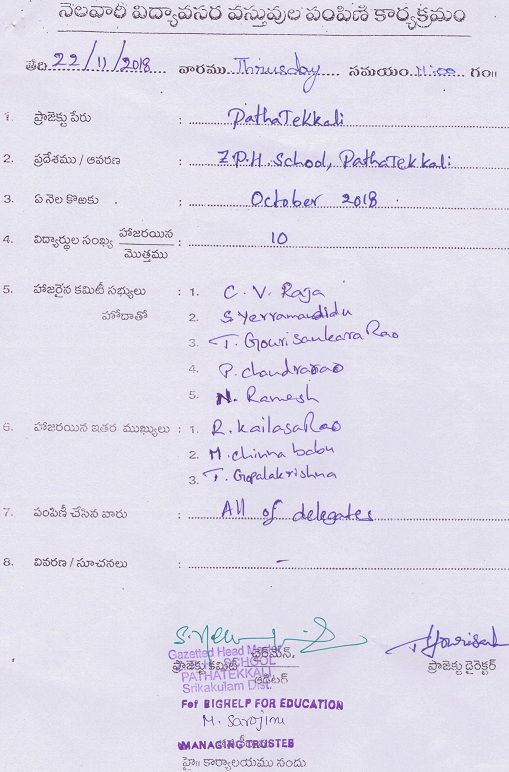 నెలవారీ విద్యావసర వస్తువుల పంపిణీ కార్యక్రమం
తేది 22/11/2018 వారము Thirusday సమయం 11:00 గం॥
1. ప్రాజెక్టు పేరు : PathaTekkali
2. ప్రదేశము / ఆవరణ : Z.P.H. School, PathaTekkali
3. ఏ నెల కొఱకు : October 2018
4. విద్యార్థుల సంఖ్య హాజరయిన / మొత్తము : 10
5. హాజరైన కమిటీ సభ్యులు : 1. C. V. Raja
హోదాతో 2. S Yerramandidu
3. T. Gourisankara Rao
4. P. chandrarao
5. N. Ramesh
6. హాజరయిన ఇతర ముఖ్యులు : 1. R. Kailasa Rao
2. M. chinna babu
3. T. Gopalakrishna
7. పంపిణీ చేసిన వారు : All of delegates
8. వివరణ / సూచనలు : -
Gazetted Head Master
ప్రాజెక్టు కమిటీ ఛైర్మన్, ప్రాజెక్టు డైరెక్టర్
SCHOOL
PATHATEKKALI
ఆడిటర్
Srikakulam Dist.
For BIGHELP FOR EDUCATION
M. Sarojini
MANAGING TRUSTEE
హై॥ కార్యాలయము నందు